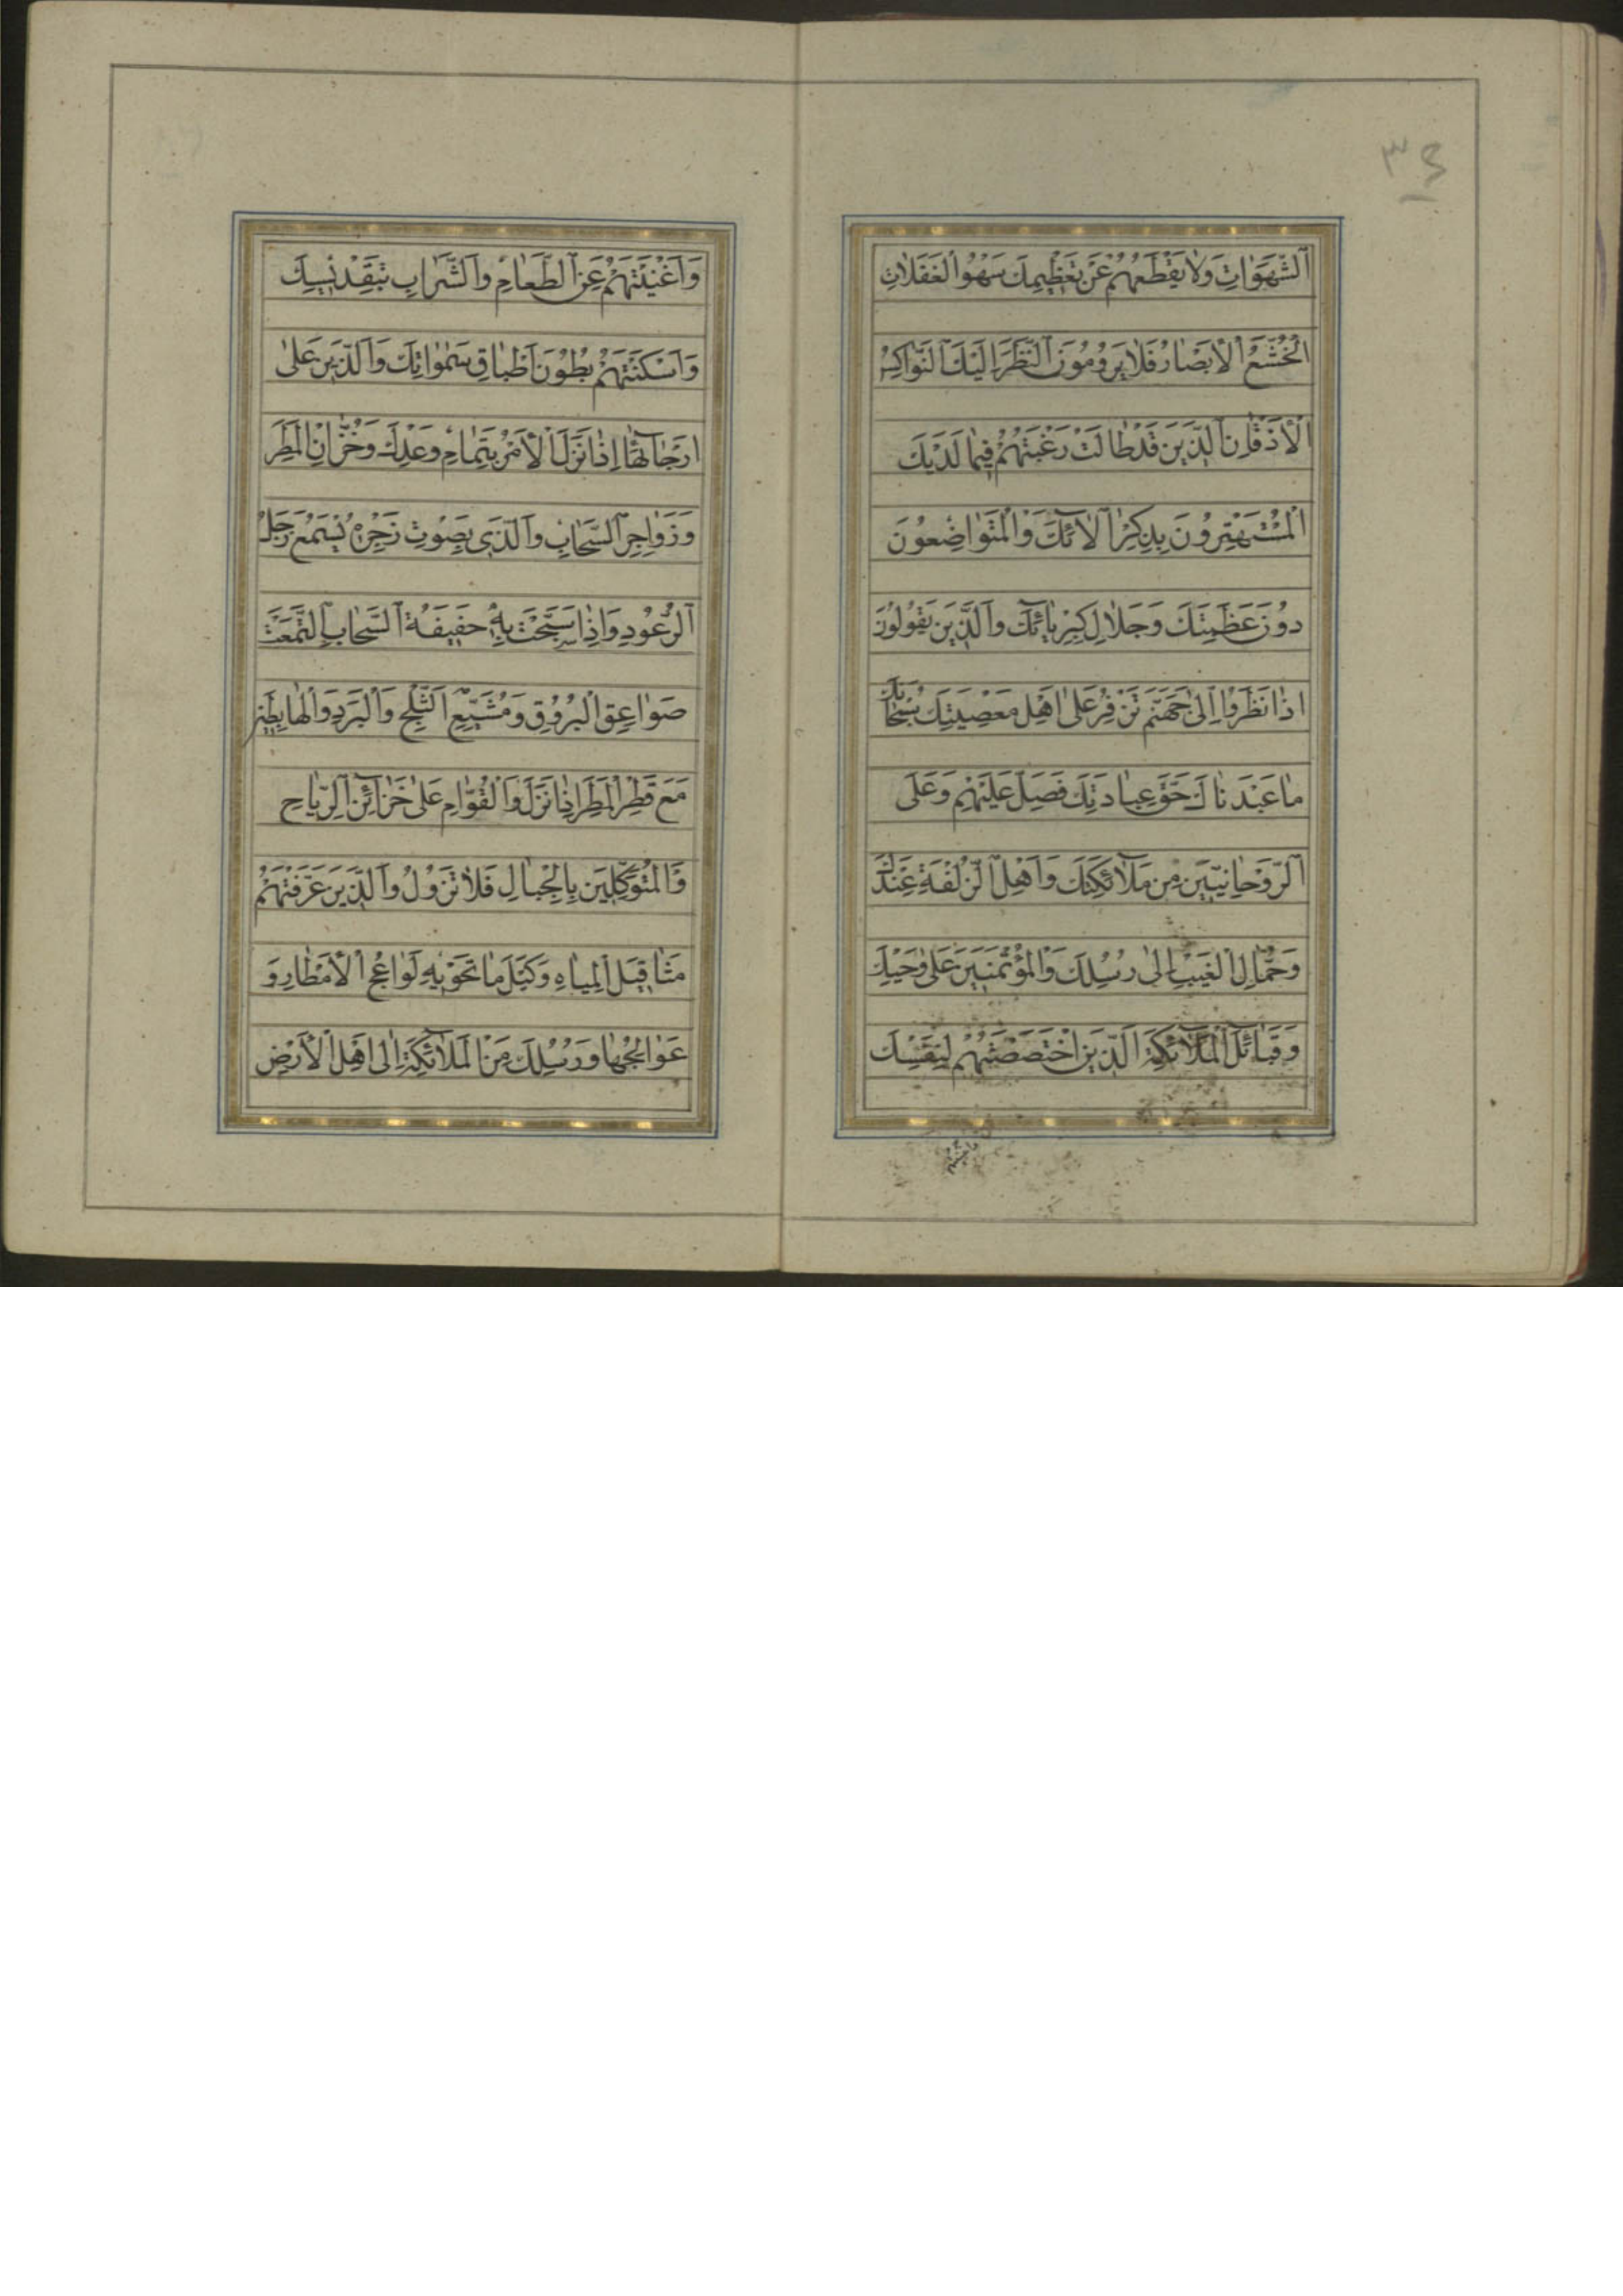 ٣٤
اَلشَّهَوَاتِ وَلَا يَقْطَعُهُمْ عَنْ تَعْظِيمِكَ سَهْوُ الْغَفَلَاتِ
الْخُشَّعُ الْأَبْصَارِ فَلَا يَرُومُونَ النَّظَرَ اِلَيْكَ النَّوَاكِسُ
الْأَذْقَانِ الَّذِينَ قَدْ طَالَتْ رَغْبَتُهُمْ فِيمَا لَدَيْكَ
الْمُسْتَهْتِرُونَ بِذِكْرِ آلَائِكَ وَالْمُتَوَاضِعُونَ
دُونَ عَظَمَتِكَ وَجَلَالِ كِبْرِيَائِكَ وَالَّذِينَ يَقُولُونَ
اِذَا نَظَرُوا اِلَى جَهَنَّمَ تَزْفِرُ عَلَى اَهْلِ مَعْصِيَتِكَ سُبْحَانَكَ
مَا عَبَدْنَاكَ حَقَّ عِبَادَتِكَ فَصَلِّ عَلَيْهِمْ وَعَلَى
الرَّوْحَانِيِّينَ مِنْ مَلَائِكَتِكَ وَاَهْلِ الزُّلْفَةِ عِنْدَكَ
وَحُمَّالِ الْغَيْبِ اِلَى رُسُلِكَ وَالْمُؤْتَمَنِينَ عَلَى وَحْيِكَ
وَقَبَائِلِ الْمَلَائِكَةِ الَّذِينَ اخْتَصَصْتَهُمْ لِنَفْسِكَ
وَاَغْنَيْتَهُمْ عَنِ الطَّعَامِ وَالشَّرَابِ بِتَقْدِيسِكَ
وَاَسْكَنْتَهُمْ بُطُونَ اَطْبَاقِ سَمٰوَاتِكَ وَالَّذِينَ عَلَى
اَرْجَائِهَا اِذَا نَزَلَ الْأَمْرُ بِتَمَامِ وَعْدِكَ وَخُزَّانِ الْمَطَرِ
وَزَوَاجِرِ السَّحَابِ وَالَّذِي بِصَوْتِ زَجْرِهِ يُسْمَعُ زَجَلُ
الرُّعُودِ وَاِذَا سَبَحَتْ بِهِ حَفِيفَةُ السَّحَابِ الْتَمَعَتْ
صَوَاعِقُ الْبُرُوقِ وَمُشَيِّعِي الثَّلْجِ وَالْبَرَدِ وَالْهَابِطِينَ
مَعَ قَطْرِ الْمَطَرِ اِذَا نَزَلَ وَالْقُوَّامِ عَلَى خَزَائِنِ الرِّيَاحِ
وَالْمُوَكَّلِينَ بِالْجِبَالِ فَلَا تَزُولُ وَالَّذِينَ عَرَّفْتَهُمْ
مَثَاقِيلَ الْمِيَاهِ وَكَيْلَ مَا تَحْوِيهِ لَوَاعِجُ الْأَمْطَارِ وَ
عَوَالِجُهَا وَرُسُلِكَ مِنَ الْمَلَائِكَةِ اِلَى اَهْلِ الْأَرْضِ